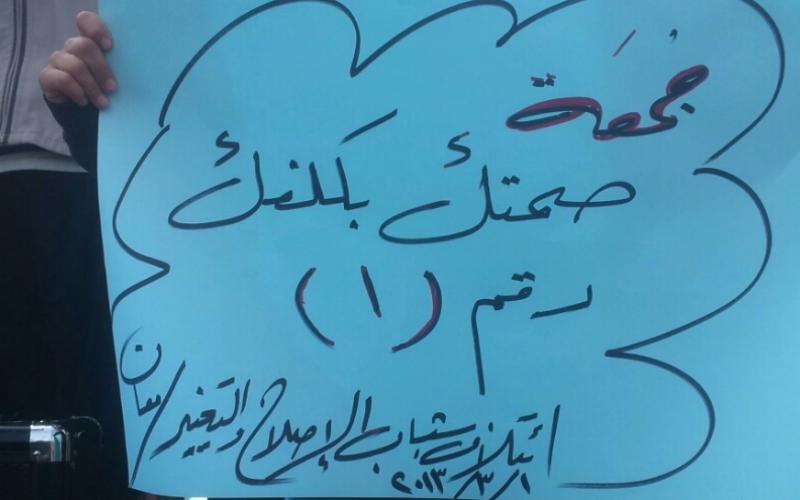 جُمَعة
صمتك بكلفك
رقم (١)
ائتلاف شباب الإصلاح والتغيير/
١/٣/٢٠١٣